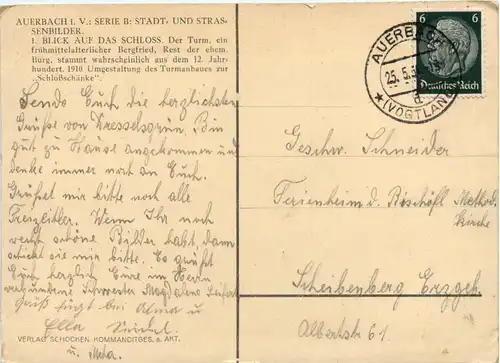 AUERBACH i. V.: SERIE B: STADT- UND STRAS-
SENBILDER.
1. BLICK AUF DAS SCHLOSS. Der Turm, ein
frühmittelalterlicher Bergfried, Rest der ehem.
Burg, stammt wahrscheinlich aus dem 12. Jahr-
hundert. 1910 Umgestaltung des Turmanbaues zur
"Schloßschänke"
Sende Euch die herzlichsten
Grüße von Dresselsgrün. Bin
gut zu Hause angekommen und
denke immer noch an Euch.
Grüßet mir bitte noch alle
Freizeitler. Wenn Ihr noch
welche schöne Bilder habt, dann
schickt sie mir bitte. Es grüßt
Euch herzlich Eure im Herrn
verbundene Schwester Magdalene
Gruß fügt bei Alma u.
Ella
u.
VERLAG SCHOCKEN, KOMMANDITGES. a. AKT.
AUERBACH
25. 5. 3
d
(VOGTLAND)
6 6
Deutsches Reich
Geschw. Schneider
Ferienheim d. Bischöfl. Method.
Kirche
Scheibenberg Erzgeb.
Albertstr. 61